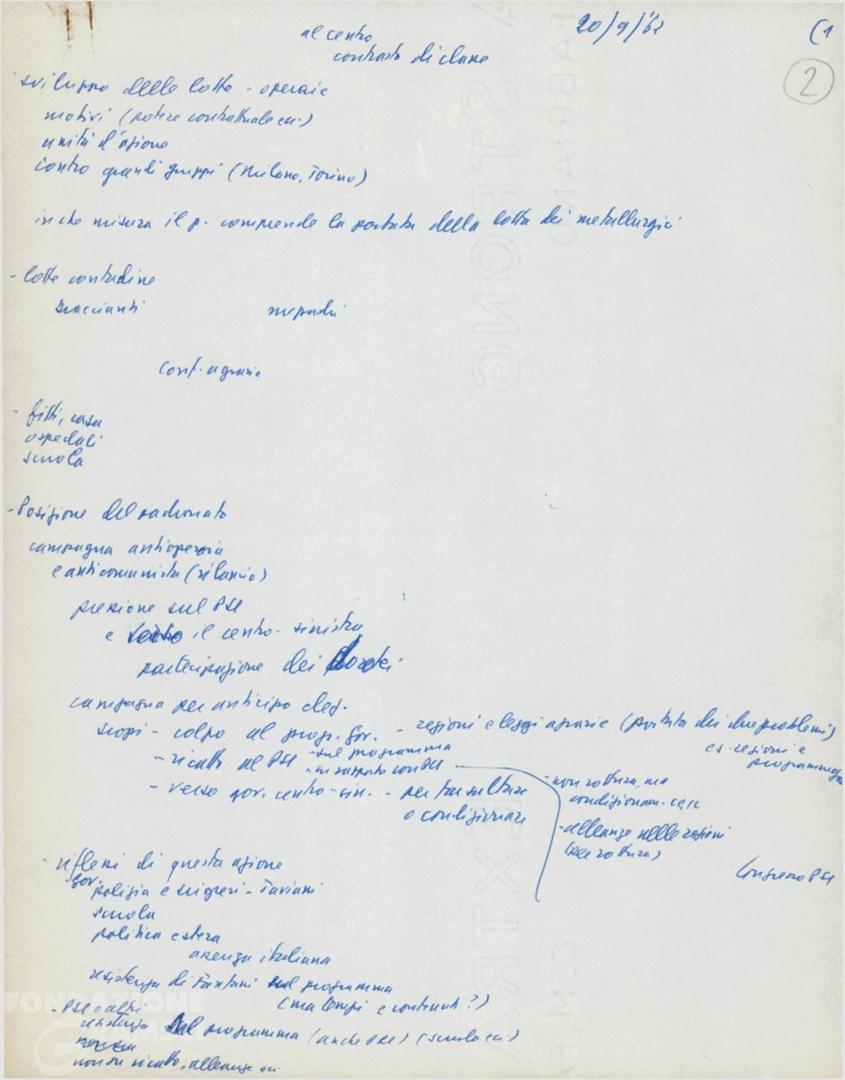 al centro
contrasto di classe
20/9/'62
(1
2
sviluppo delle lotte - operaie
motivi (potere contrattuale ecc.)
unità d'azione
contro grandi gruppi (Milano, Torino)
in che misura il p. comprende la portata della lotta dei metallurgici
- lotte contadine
braccianti mezzadri
Conf. agraria
- fitti, casa
ospedali
scuola
- Posizione del padronato
campagna antioperaia
e anticomunista (rilancio)
pressione sul PSI
e il centro-sinistra
partecipazione dei dorotei
campagna per anticipo elez.
scopi - colpo al progr. gov. - regioni e leggi agrarie (portata dei due problemi)
es. regioni e
programmaz.
- ricatto al PSI - sul programma
- in rapporto con PCI
- verso gov. centro-sin. - per far saltare
o condizionare
- non rottura, ma
condizionam.
- alleanze nelle regioni
(per rottura)
Congresso PSI
- riflessi di questa azione
gov.
polizia e - Taviani
scuola
politica estera
assenza italiana
resistenza di Fanfani sul programma
(ma tempi e contenuti?)
- PSI e altri
resistenza sul programma (anche PRI) (scuola ecc.)
non su ricatto, alleanze ecc.
FONDAZIONE
GRAMSCI
FABRIANO
EXTRA